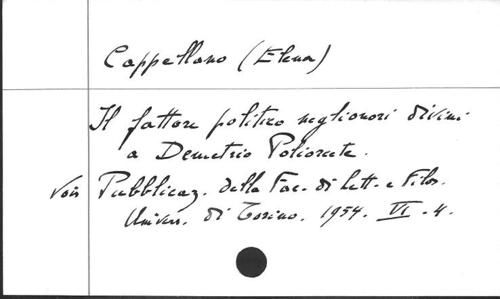 Cappellano (Elena)
Il fattore politico negli onori divini
a Demetrio Poliorcete.
Voir Pubblicaz. della Fac. di Lett. e Filos.
Univers. di Torino. 1954. VI. 4.